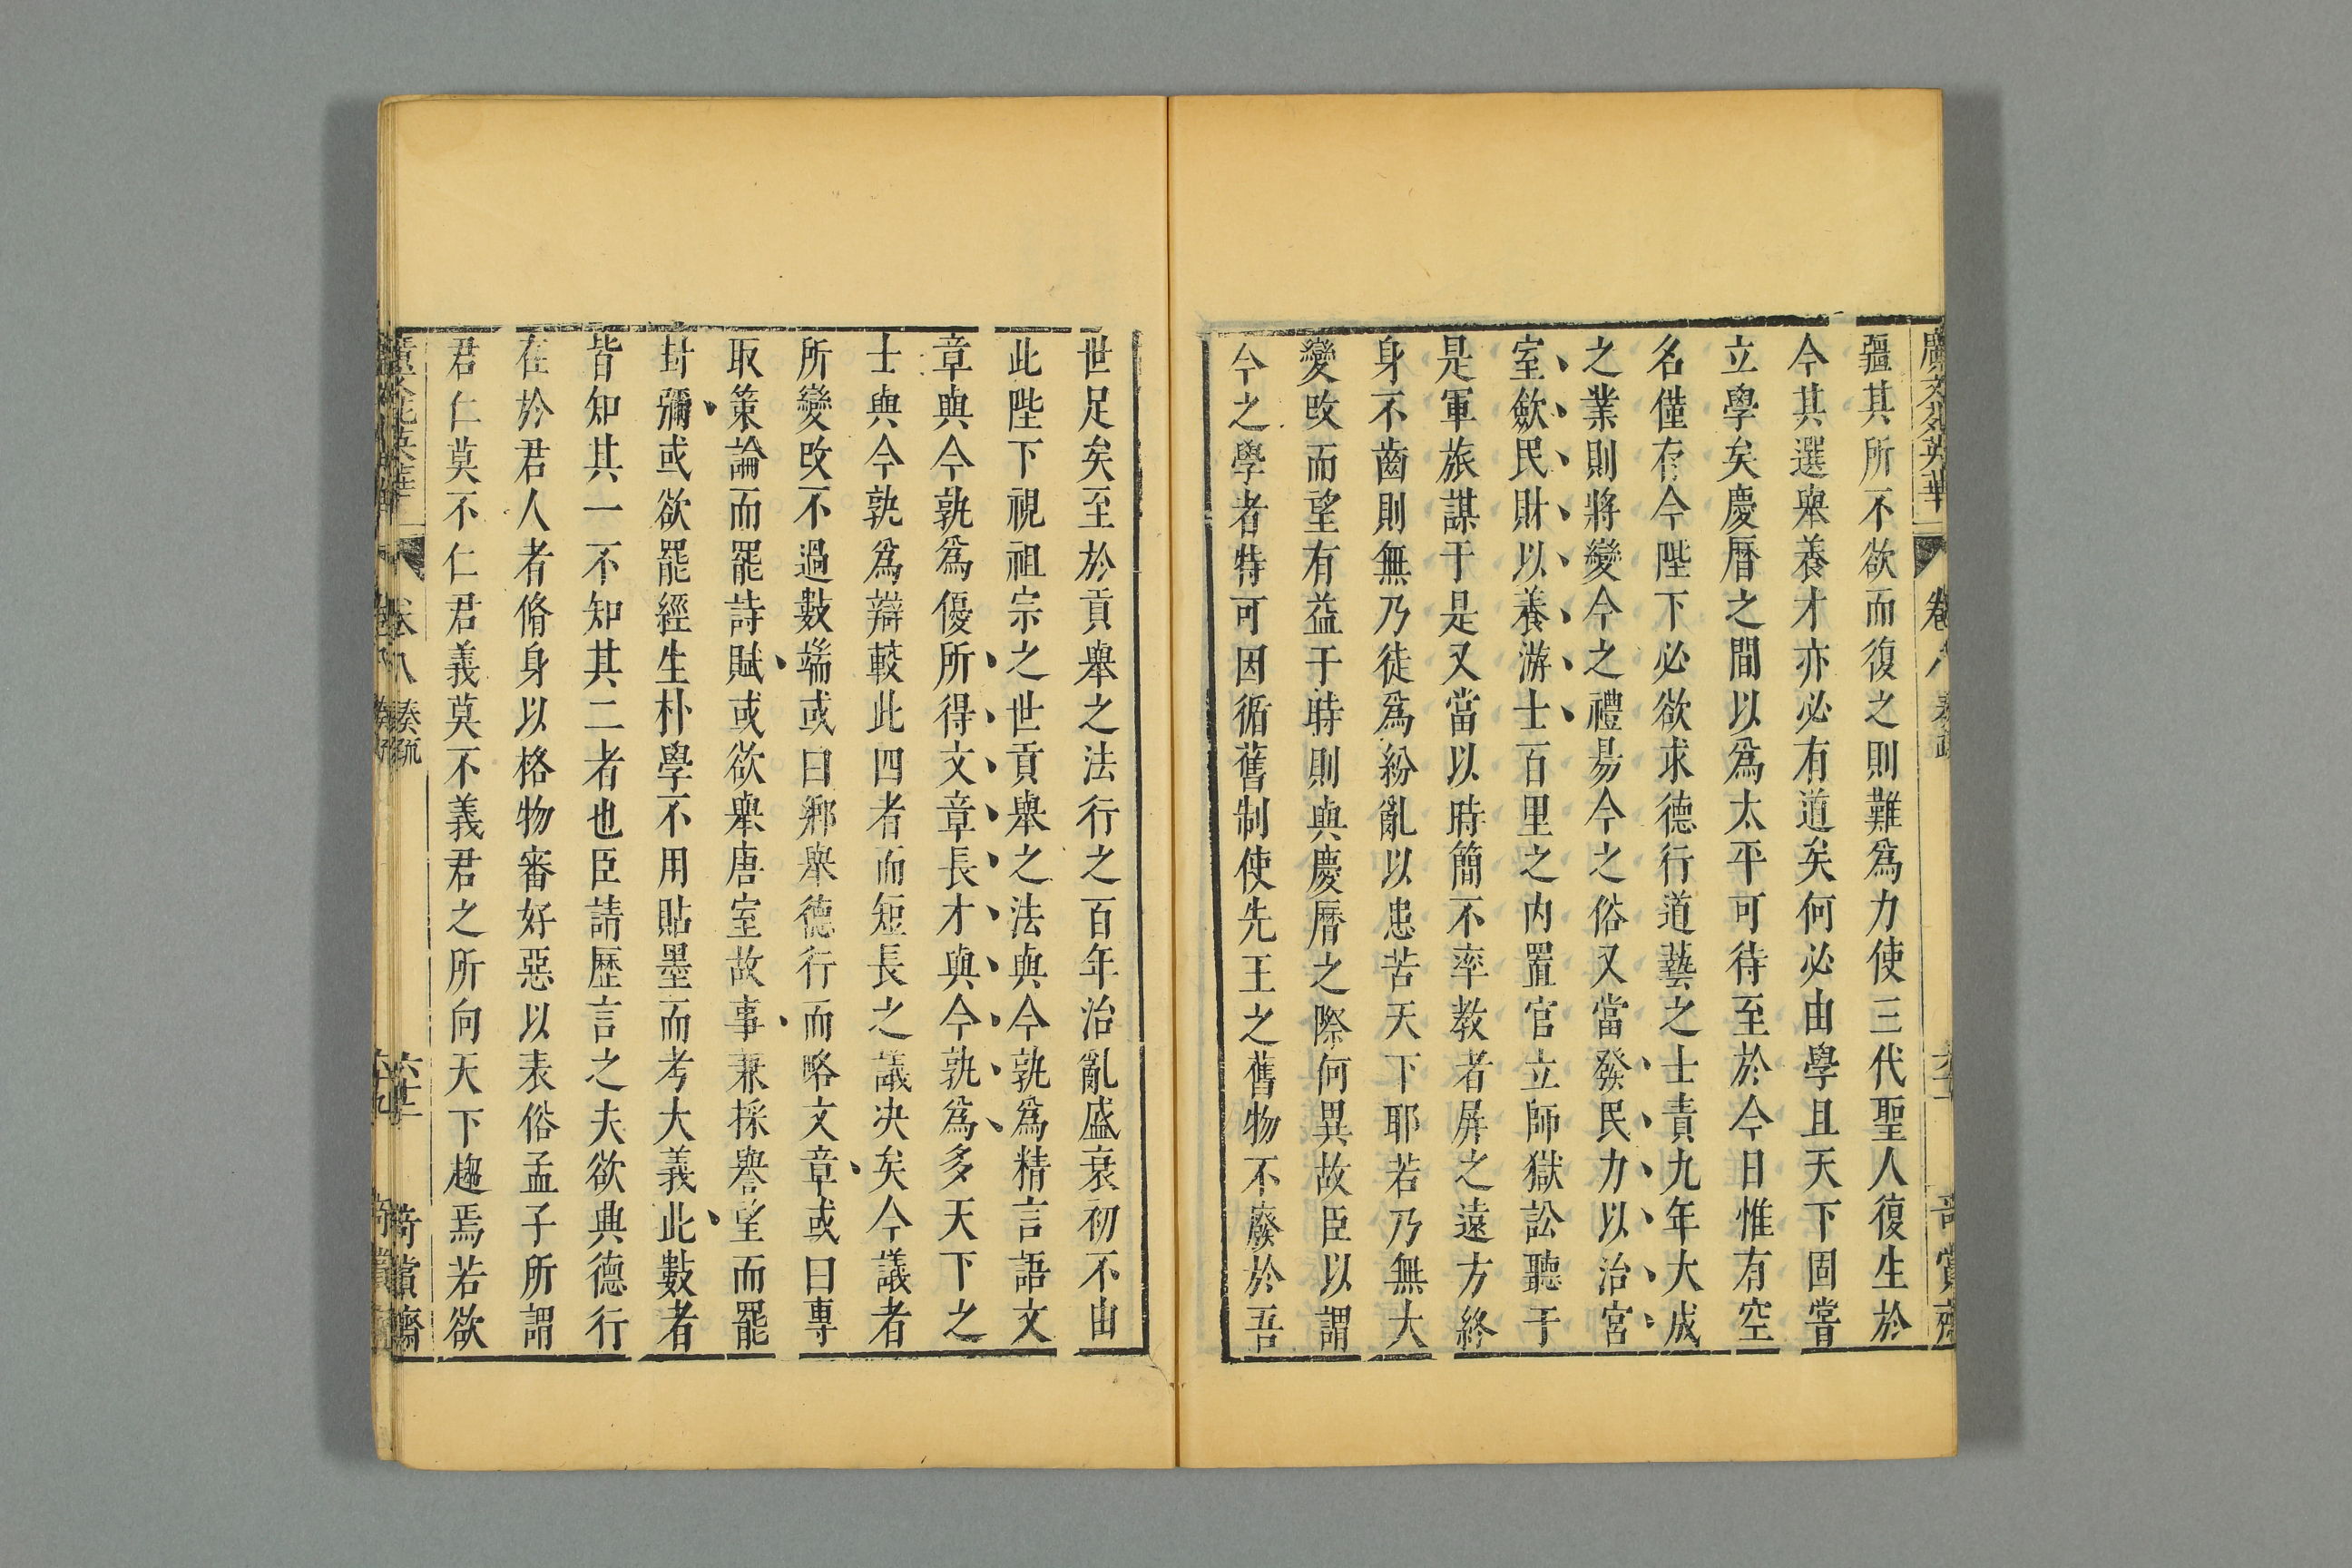 廣文苑英華 卷八 奏疏 奇賞齋
疆其所不欲而復之則難爲力使三代聖人復生於
今其選舉養才亦必有道矣何必由學且天下固嘗
立學矣慶曆之間以爲太平可待至於今日惟有空
名僅存今陛下必欲求德行道藝之士責九年大成
之業則將變今之禮易今之俗又當發民力以治宮
室歛民財以養游士百里之內置官立師獄訟聽于
是軍旅謀于是又當以時簡不率教者屏之遠方終
身不齒則無乃徒爲紛亂以患苦天下耶若乃無大
變改而望有益于時則與慶曆之際何異故臣以謂
今之學者特可因循舊制使先王之舊物不廢於吾
世足矣至於貢舉之法行之百年治亂盛衰初不由
此陛下視祖宗之世貢舉之法與今孰爲精言語文
章與今孰爲優所得文章長才與今孰爲多天下之
士與今孰爲辯較此四者而短長之議决矣今議者
所變改不過數端或曰鄉舉德行而略文章或曰專
取策論而罷詩賦或欲舉唐室故事兼採譽望而罷
封彌或欲罷經生朴學不用貼墨而考大義此數者
皆知其一不知其二者也臣請歷言之夫欲興德行
在於君人者脩身以格物審好惡以表俗孟子所謂
君仁莫不仁君義莫不義君之所向天下趨焉若欲
卷八 奏疏 奇賞齋